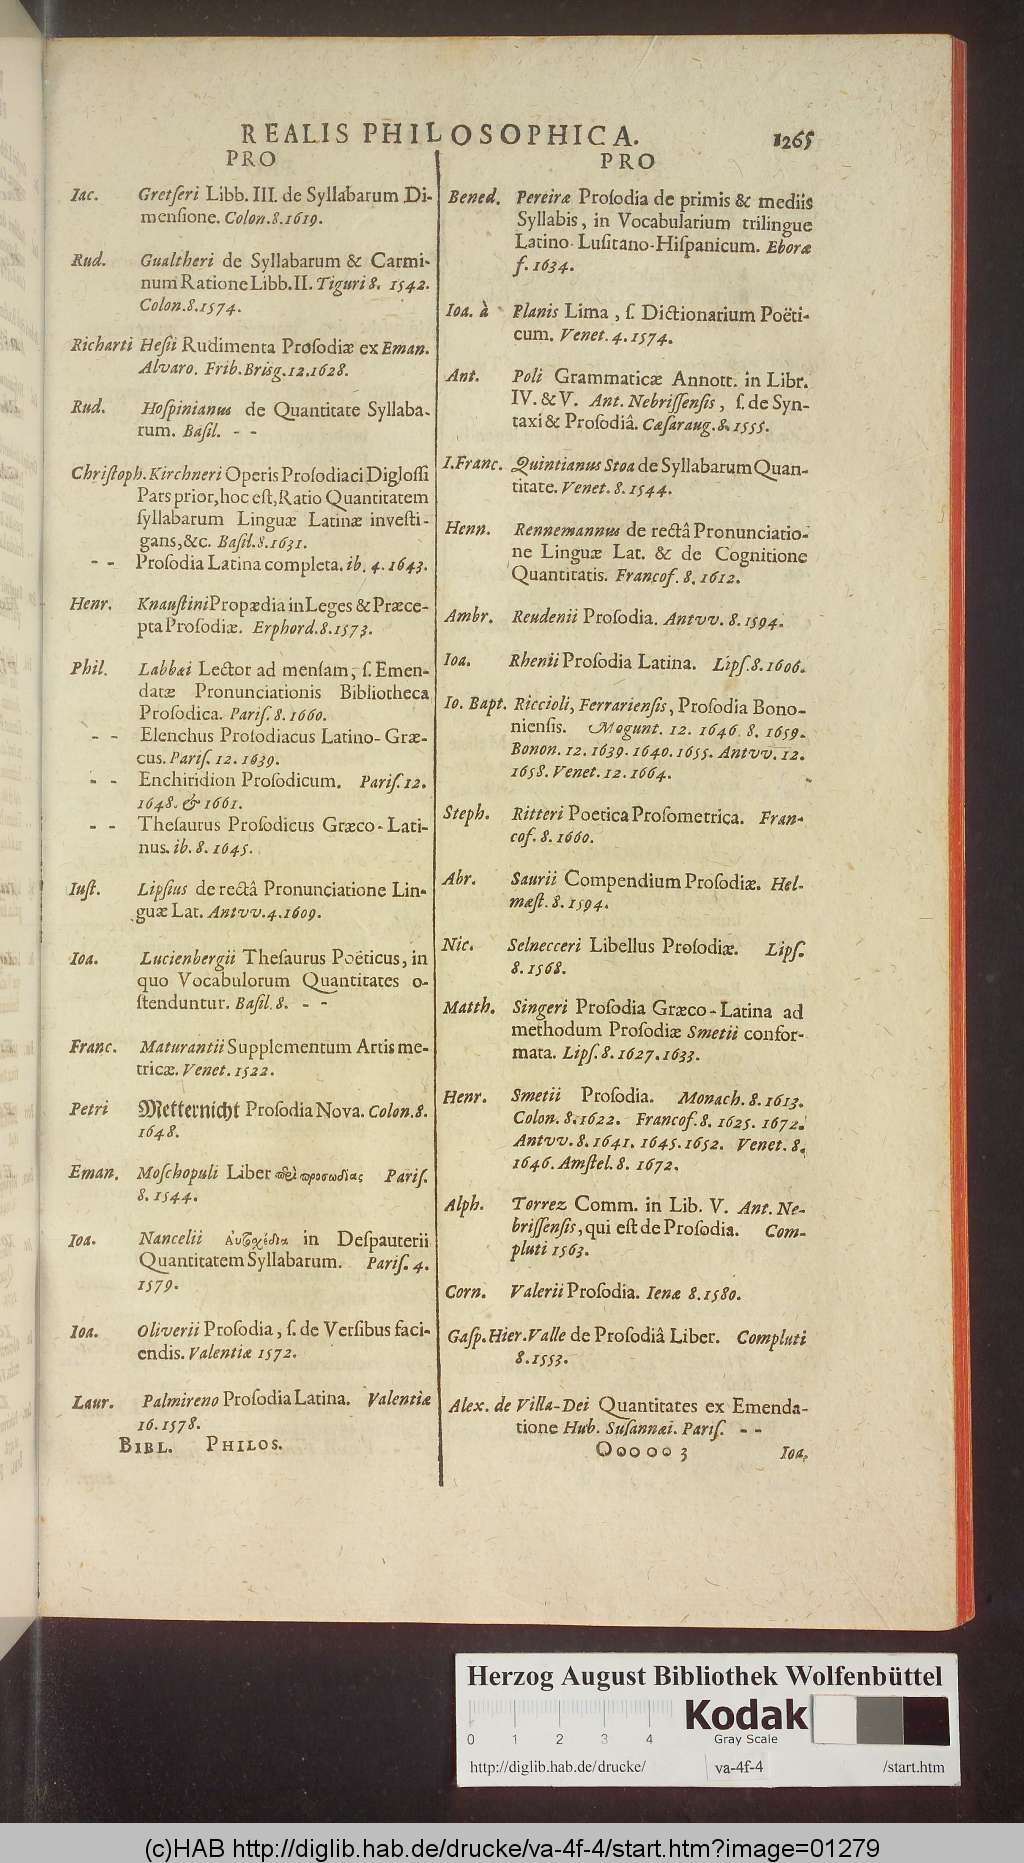 REALIS PHILOSOPHICA. 1265
PRO
Iac. Gretſeri Libb. III. de Syllabarum Di-
menſione. Colon. 8. 1619.
Rud. Gualtheri de Syllabarum & Carmi-
num Ratione Libb. II. Tiguri 8. 1542.
Colon. 8. 1574.
Richarti Heſii Rudimenta Proſodiæ ex Eman.
Alvaro. Frib. Brisg. 12. 1628.
Rud. Hoſpinianus de Quantitate Syllaba-
rum. Baſil. - -
Chriſtoph. Kirchneri Operis Proſodiaci Digloſſi
Pars prior, hoc eſt, Ratio Quantitatem
ſyllabarum Linguæ Latinæ inveſti-
gans, &c. Baſil. 8. 1631.
- - Proſodia Latina completa. ib. 4. 1643.
Henr. Knauſtini Propædia in Leges & Præce-
pta Proſodiæ. Erphord. 8. 1573.
Phil. Labbæi Lector ad menſam, ſ. Emen-
datæ Pronunciationis Bibliotheca
Proſodica. Pariſ. 8. 1660.
- - Elenchus Proſodiacus Latino-Græ-
cus. Pariſ. 12. 1639.
- - Enchiridion Proſodicum. Pariſ. 12.
1648. & 1661.
- - Theſaurus Proſodicus Græco-Lati-
nus. ib. 8. 1645.
Iuſt. Lipſius de rectâ Pronunciatione Lin-
guæ Lat. Antvv. 4. 1609.
Ioa. Lucienbergii Theſaurus Poëticus, in
quo Vocabulorum Quantitates o-
ſtenduntur. Baſil. 8. - -
Franc. Maturantii Supplementum Artis me-
tricæ. Venet. 1522.
Petri Metternicht Proſodia Nova. Colon. 8.
1648.
Eman. Moſchopuli Liber περὶ προσωδίας Pariſ.
8. 1544.
Ioa. Nancelii in Deſpauterii
Quantitatem Syllabarum. Pariſ. 4.
1579.
Ioa. Oliverii Proſodia, ſ. de Verſibus faci-
endis. Valentiæ 1572.
Laur. Palmireno Proſodia Latina. Valentiæ
16. 1578.
BIBL. PHILOS.
PRO
Bened. Pereiræ Proſodia de primis & mediis
Syllabis, in Vocabularium trilingue
Latino-Luſitano-Hiſpanicum. Eboræ
f. 1634.
Ioa. à Planis Lima, ſ. Dictionarium Poëti-
cum. Venet. 4. 1574.
Ant. Poli Grammaticæ Annott. in Libr.
IV. & V. Ant. Nebriſſenſis, ſ. de Syn-
taxi & Proſodiâ. Cæſaraug. 8. 1555.
I. Franc. Quintianus Stoa de Syllabarum Quan-
titate. Venet. 8. 1544.
Henn. Rennemannus de rectâ Pronunciatio-
ne Linguæ Lat. & de Cognitione
Quantitatis. Francof. 8. 1612.
Ambr. Reudenii Proſodia. Antvv. 8. 1594.
Ioa. Rhenii Proſodia Latina. Lipſ. 8. 1606.
Io. Bapt. Riccioli, Ferrarienſis, Proſodia Bono-
nienſis. Mogunt. 12. 1646. 8. 1659.
Bonon. 12. 1639. 1640. 1655. Antvv. 12.
1658. Venet. 12. 1664.
Steph. Ritteri Poetica Proſometrica. Fran-
cof. 8. 1660.
Abr. Saurii Compendium Proſodiæ. Hel-
mæſt. 8. 1594.
Nic. Selnecceri Libellus Proſodiæ. Lipſ.
8. 1568.
Matth. Singeri Proſodia Græco-Latina ad
methodum Proſodiæ Smetii confor-
mata. Lipſ. 8. 1627. 1633.
Henr. Smetii Proſodia. Monach. 8. 1613.
Colon. 8. 1622. Francof. 8. 1625. 1672.
Antvv. 8. 1641. 1645. 1652. Venet. 8.
1646. Amſtel. 8. 1672.
Alph. Torrez Comm. in Lib. V. Ant. Ne-
briſſenſis, qui eſt de Proſodia. Com-
pluti 1563.
Corn. Valerii Proſodia. Ienæ 8. 1580.
Gaſp. Hier. Valle de Proſodiâ Liber. Compluti
8. 1553.
Alex. de Villa-Dei Quantitates ex Emenda-
tione Hub. Suſannæi. Pariſ. - -
Ooooo 3 Ioa.
Herzog August Bibliothek Wolfenbüttel
0 1 2 3 4
Kodak
Gray Scale
http://diglib.hab.de/drucke/ va-4f-4 /start.htm
(c)HAB http://diglib.hab.de/drucke/va-4f-4/start.htm?image=01279